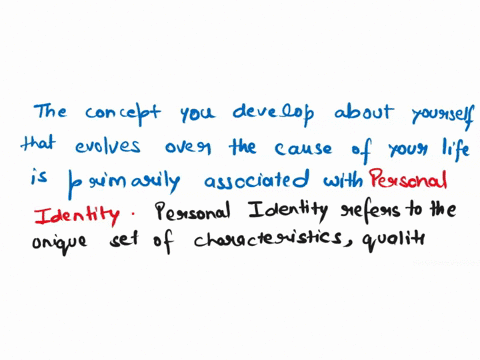 The concept you develop about yourself
that evolves over the cause of your life
is primarily associated with Personal
Identity. Personal Identity refers to the
unique set of characteristics, qualiti